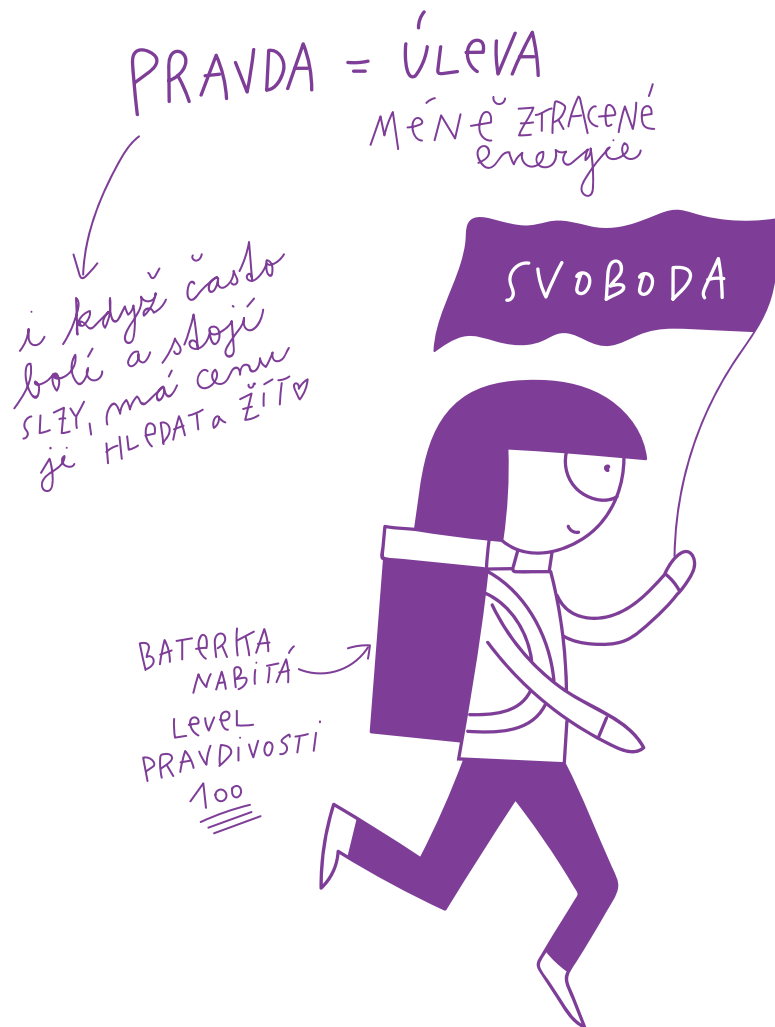 PRAVDA = ÚLEVA
MÉNĚ ZTRACENÉ
energie
SVOBODA
i když často
bolí a stojí
SLZY, má cenu
ji HLEDAT a ŽÍT♡
BATERKA
NABITÁ
LEVEL
PRAVDIVOSTI
100